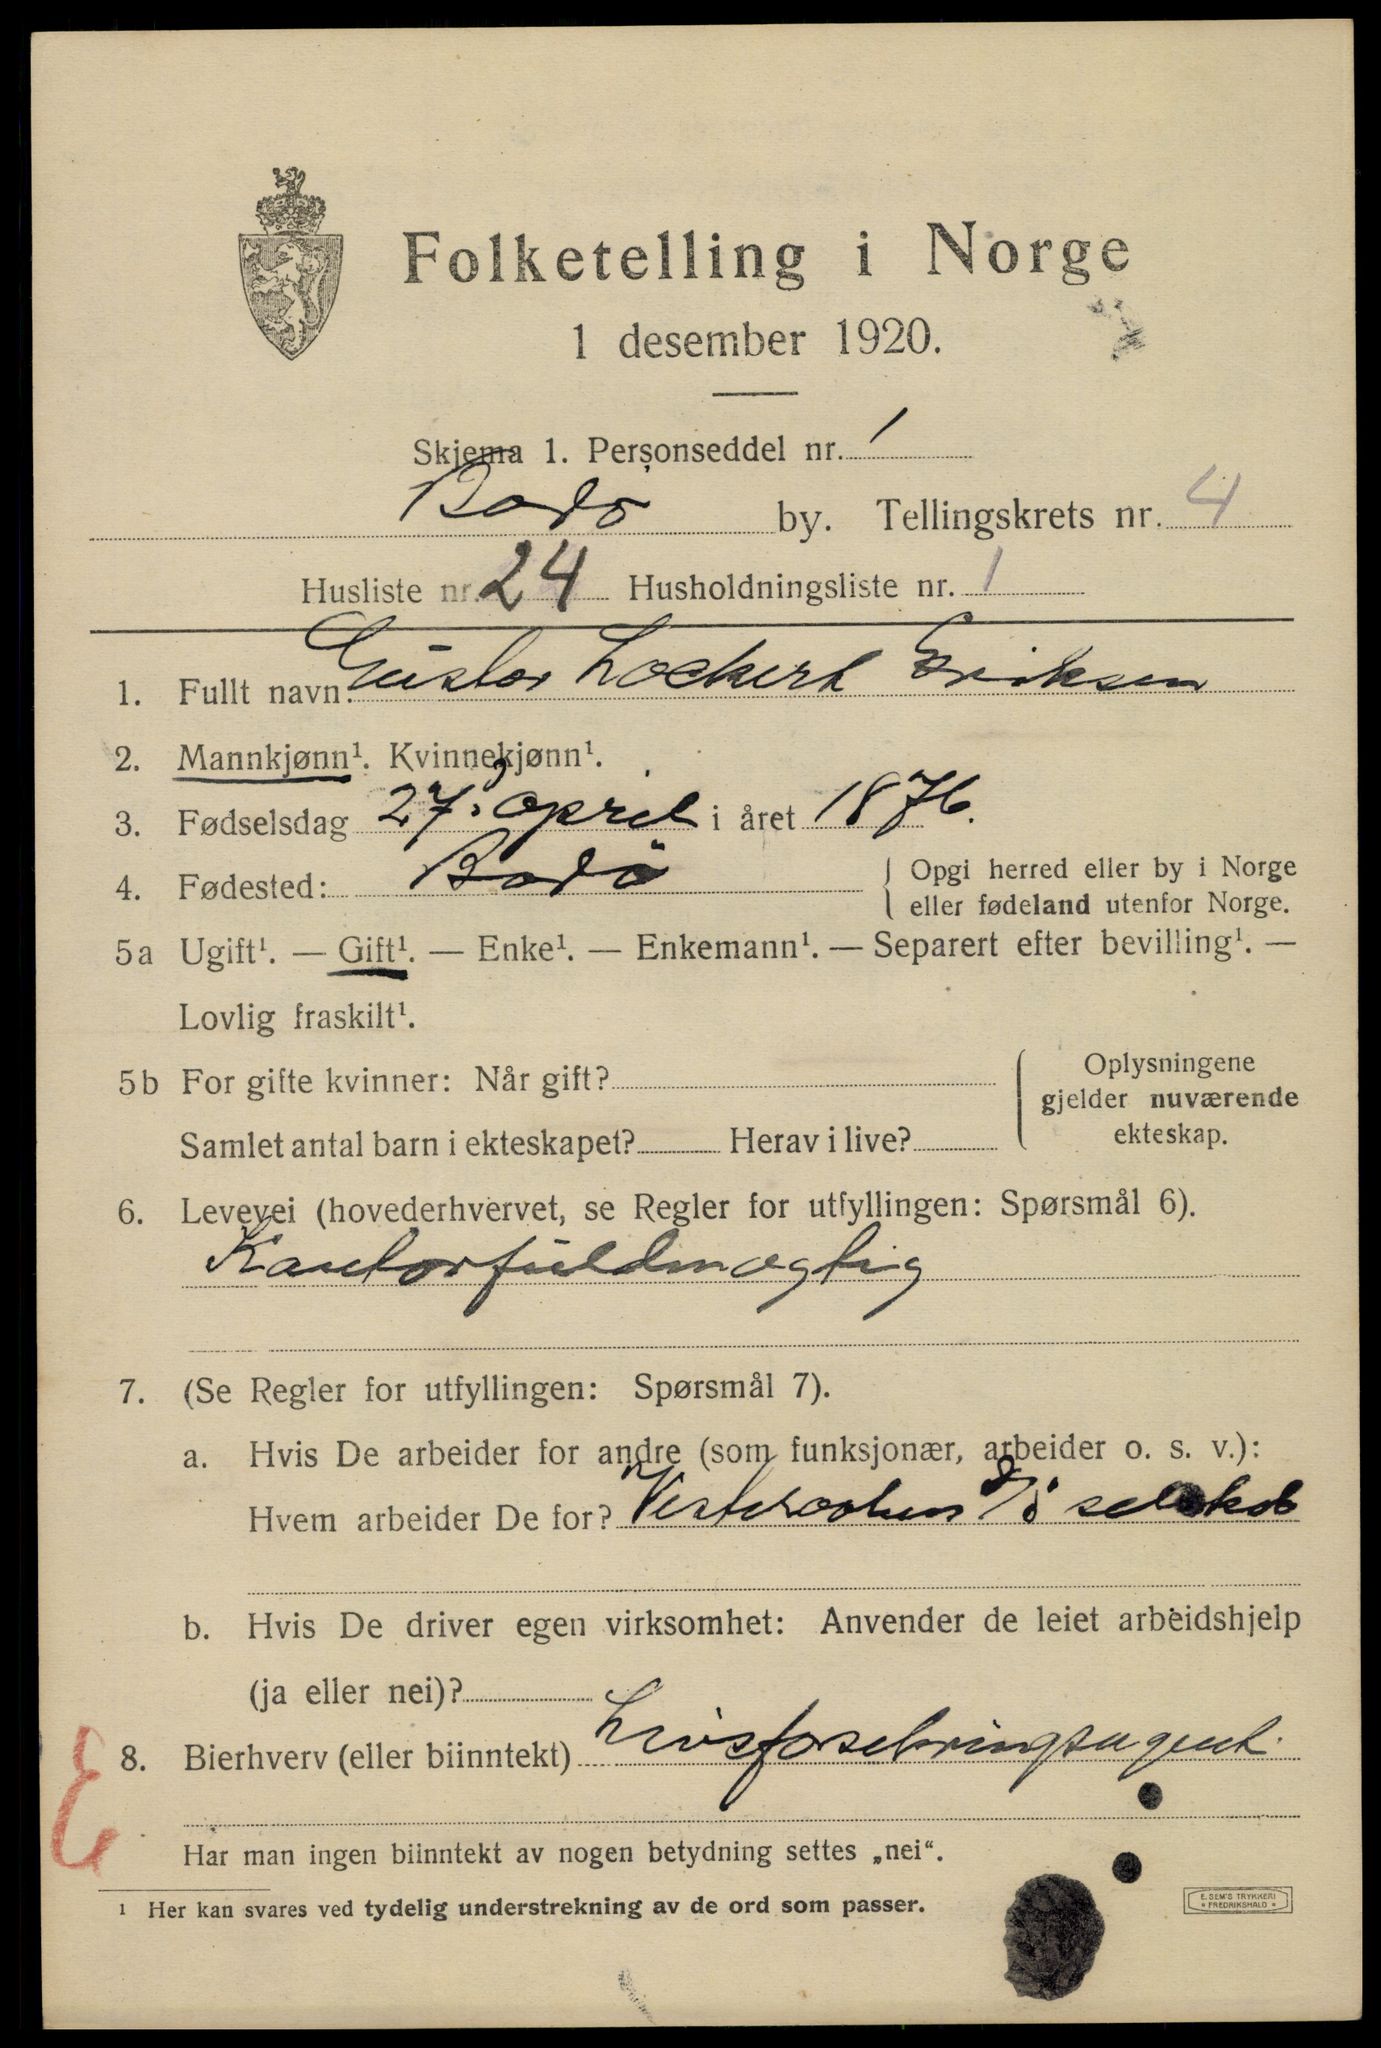 Folketelling i Norge
1 desember 1920.
Skjema 1. Personseddel nr. 1
Bodø by. Tellingskrets nr. 4
Husliste nr. 24 Husholdningsliste nr. 1
1. Fullt navn: Gustav Lockert Eriksen
2. Mannkjønn¹. Kvinnekjønn¹.
3. Fødselsdag 27. april i året 1876.
4. Fødested: Bodø { Opgi herred eller by i Norge
eller fødeland utenfor Norge.
5a Ugift¹. — Gift¹. — Enke¹. — Enkemann¹. — Separert efter bevilling¹. —
Lovlig fraskilt¹.
5b For gifte kvinner: Når gift? { Oplysningene
gjelder nuværende
Samlet antal barn i ekteskapet? Herav i live? ekteskap.
6. Levevei (hovederhvervet, se Regler for utfyllingen: Spørsmål 6).
Kontorfuldmægtig
7. (Se Regler for utfyllingen: Spørsmål 7).
a. Hvis De arbeider for andre (som funksjonær, arbeider o. s. v.):
Hvem arbeider De for? Vesteraalens D/s selskab
b. Hvis De driver egen virksomhet: Anvender de leiet arbeidshjelp
(ja eller nei)?
8. Bierhverv (eller biinntekt) Livsforsekringsagent.
E
Har man ingen biinntekt av nogen betydning settes „nei“.
¹ Her kan svares ved tydelig understrekning av de ord som passer.
E. SEM'S TRYKKERI
* FREDRIKSHALD *